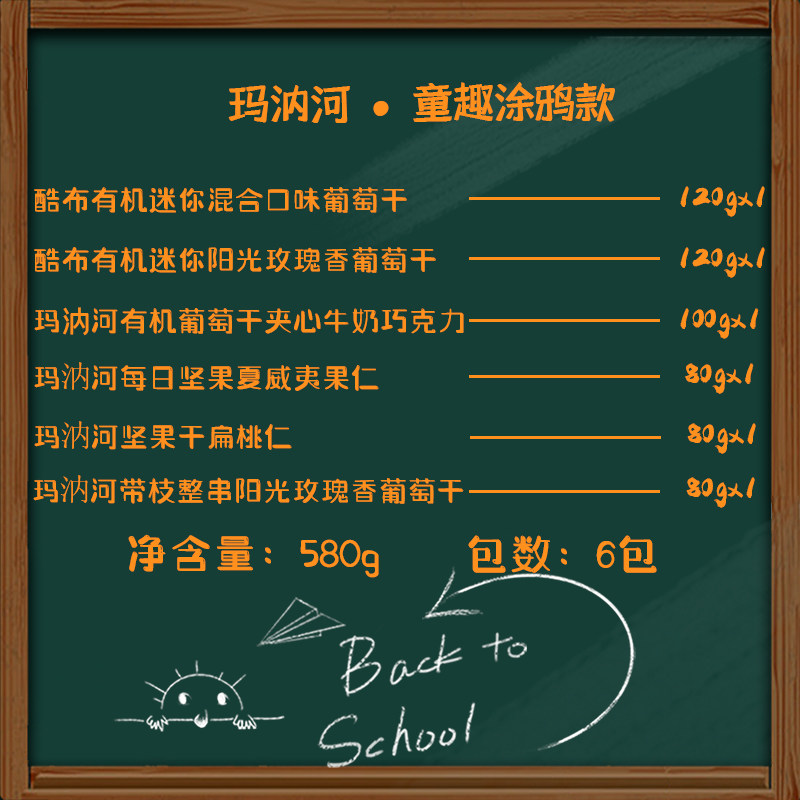 玛汭河·童趣涂鸦款
酷布有机迷你混合口味葡萄干 120gx1
酷布有机迷你阳光玫瑰香葡萄干 120gx1
玛汭河有机葡萄干夹心牛奶巧克力 100gx1
玛汭河每日坚果夏威夷果仁 80gx1
玛汭河坚果干扁桃仁 80gx1
玛汭河带枝整串阳光玫瑰香葡萄干 80gx1
净含量：580g 包数：6包
Back to
School